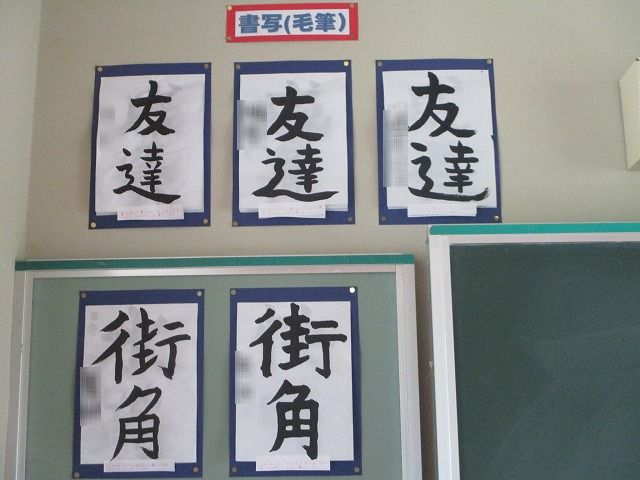 書写(毛筆)
友達
友達
友達
街角
街角